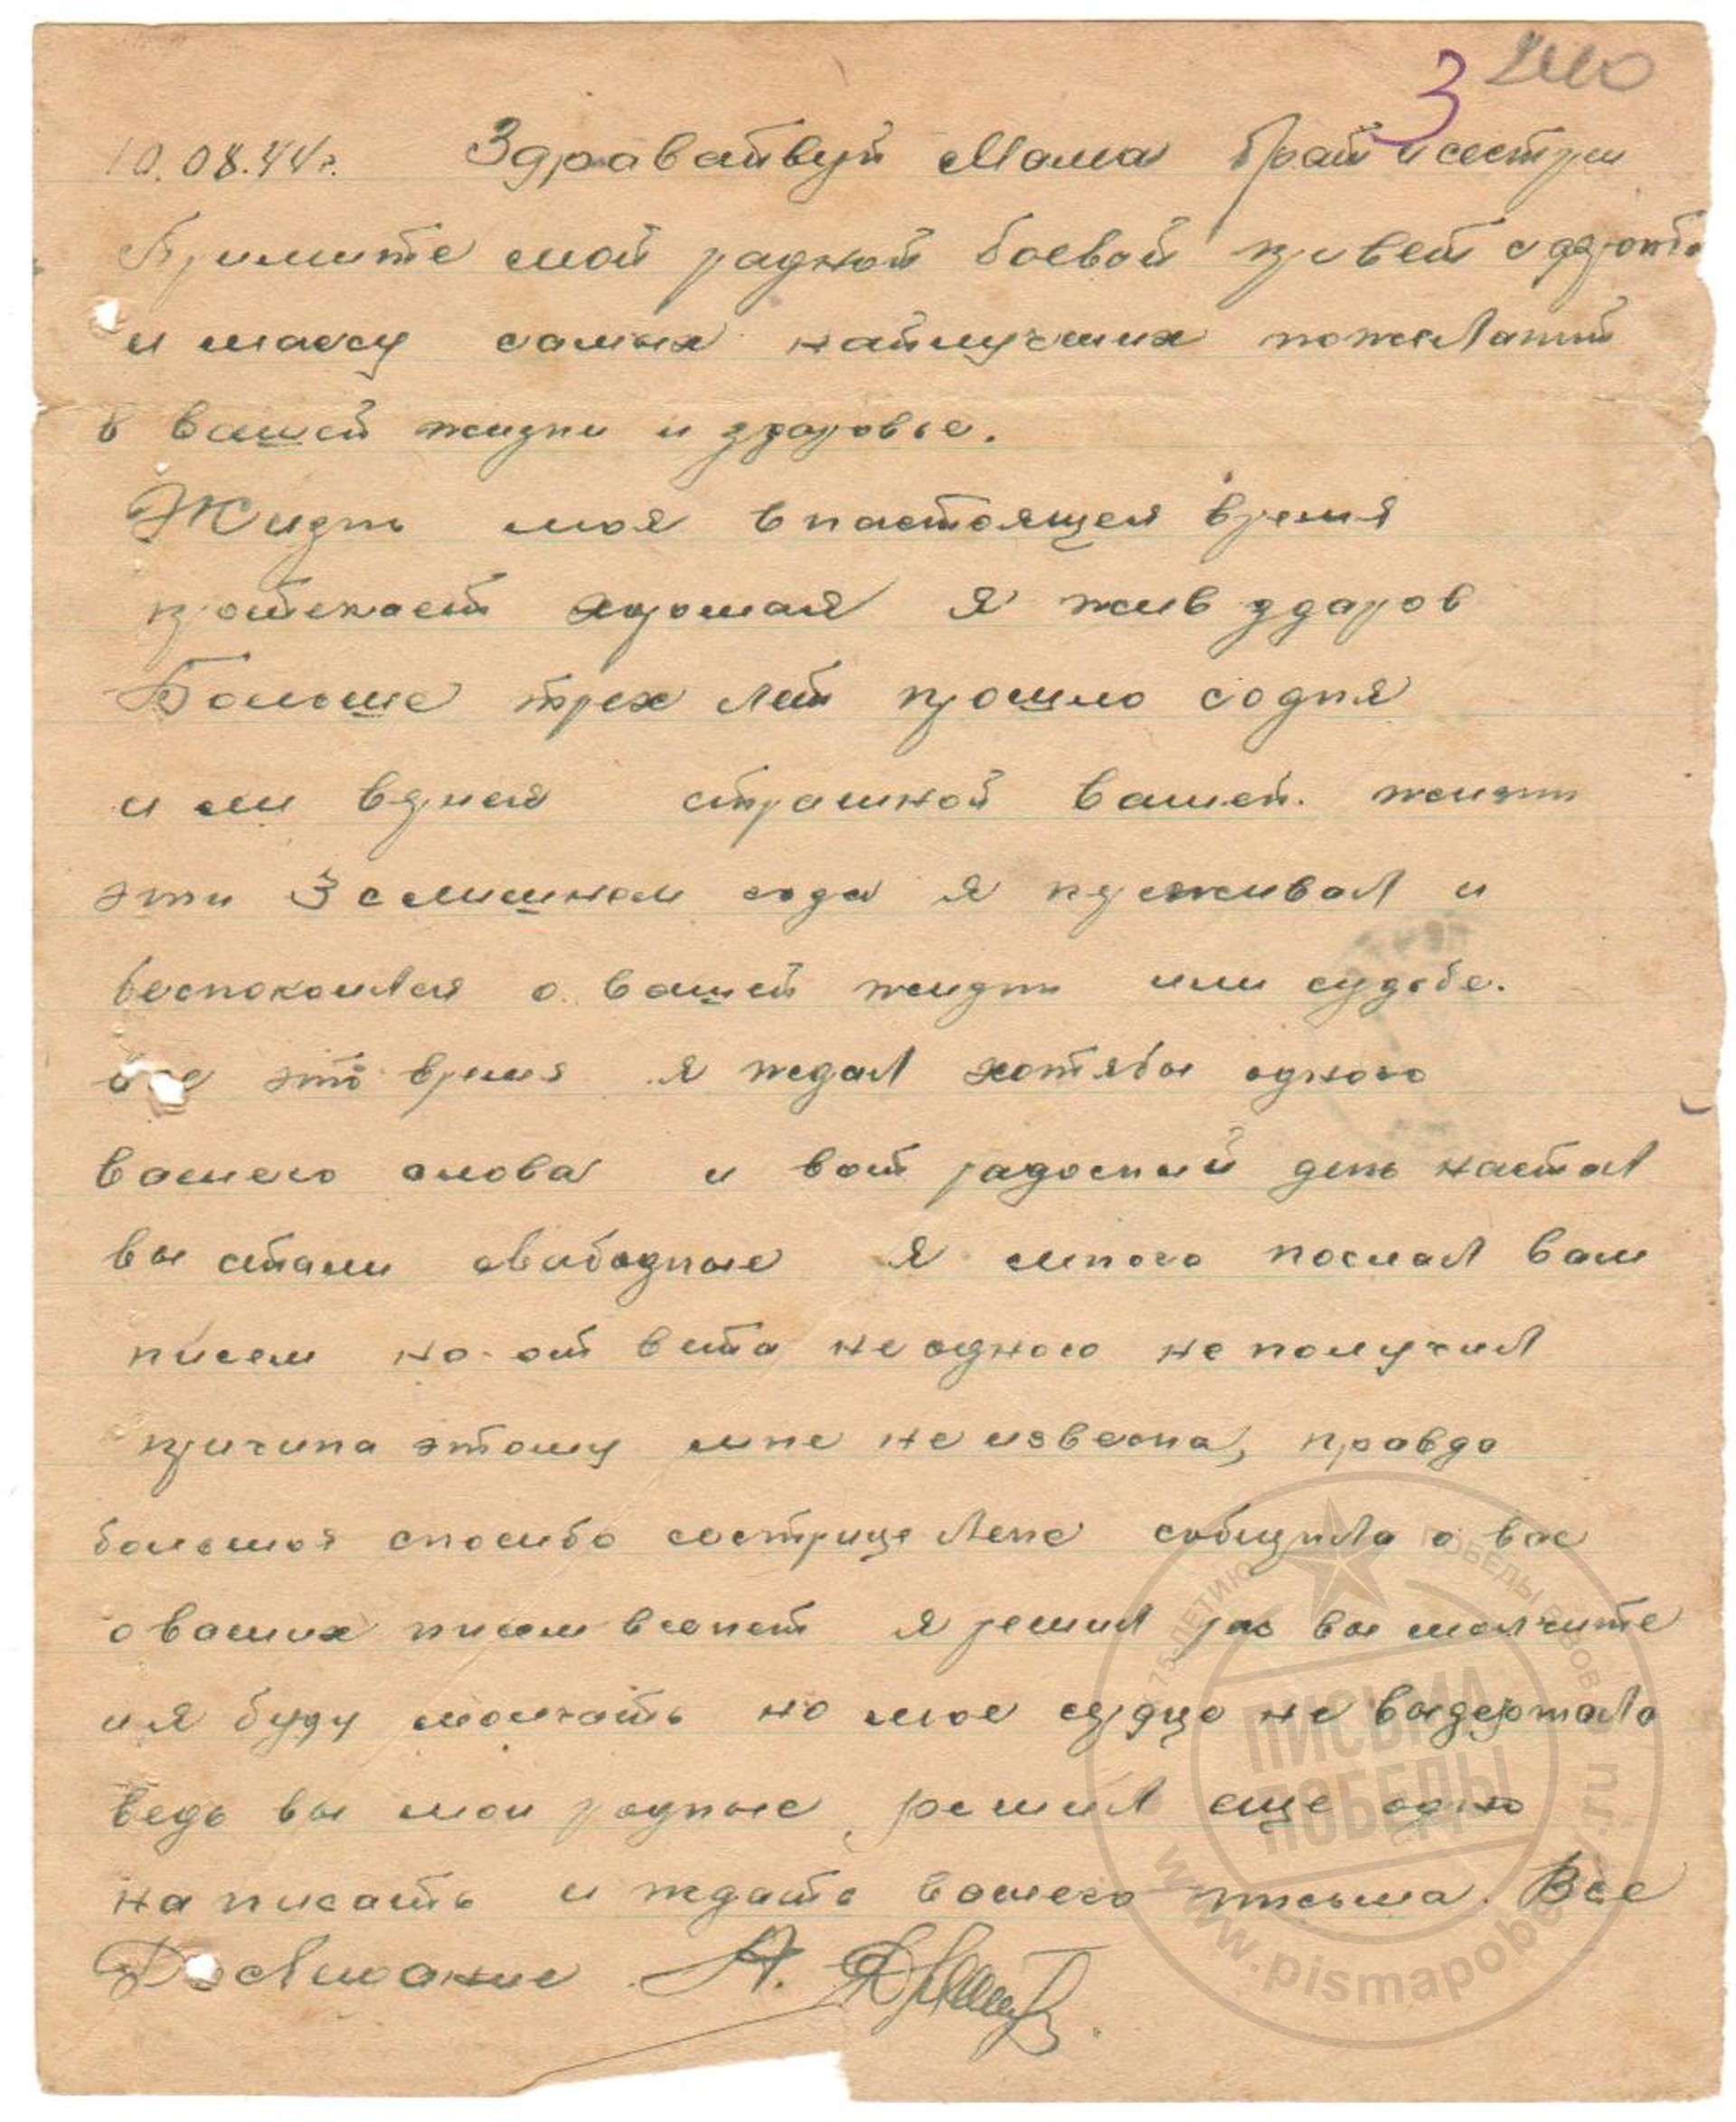 3
10.08.44г. Здравайвуй Мама брат и сестры
Примите мой радной боевой привет с фронта
и массу самых найлучших пожеланий
в вашей жизни и здаровье.
Жизнь моя в настоящея время
протекает харошая я жив здаров
Больше трех лет прошло содня
страшной вашей жизни
эти 3 слишном года я преживал и
беспокоился о вашей жизни или судьбе.
все это время я ждал хотябы одного
вашего слова и вот радосный день настал
вы стали свабодные я много послал вам
писем но от вета не одного не получил
причина этому мне не извесна, правда
большоя спосибо сестрице Лене собщила о вас
о ваших писем всенет я решил раз вы молчите
ия буду молчать но мое сердце не выдержало
ведь вы мои родные решил еще одно
на писать и ждать вашего письма. Все
Досвиюание А.
75-ЛЕТИЮ ПОБЕДЫ В ВОВ
ПИСЬМА
ПОБЕДЫ
www.pismapobedy.ru